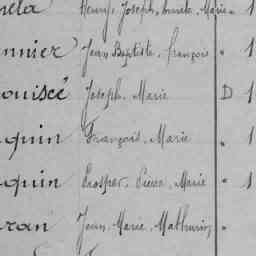 Henry, Joseph, Marie " 1
nnier Jean Baptiste, François " 1
ouiscé Joseph, Marie D 1
quin François, Marie " 1
quin Prosper, Pierre, Marie " 1
ran Jean, Marie, Mathurin, "